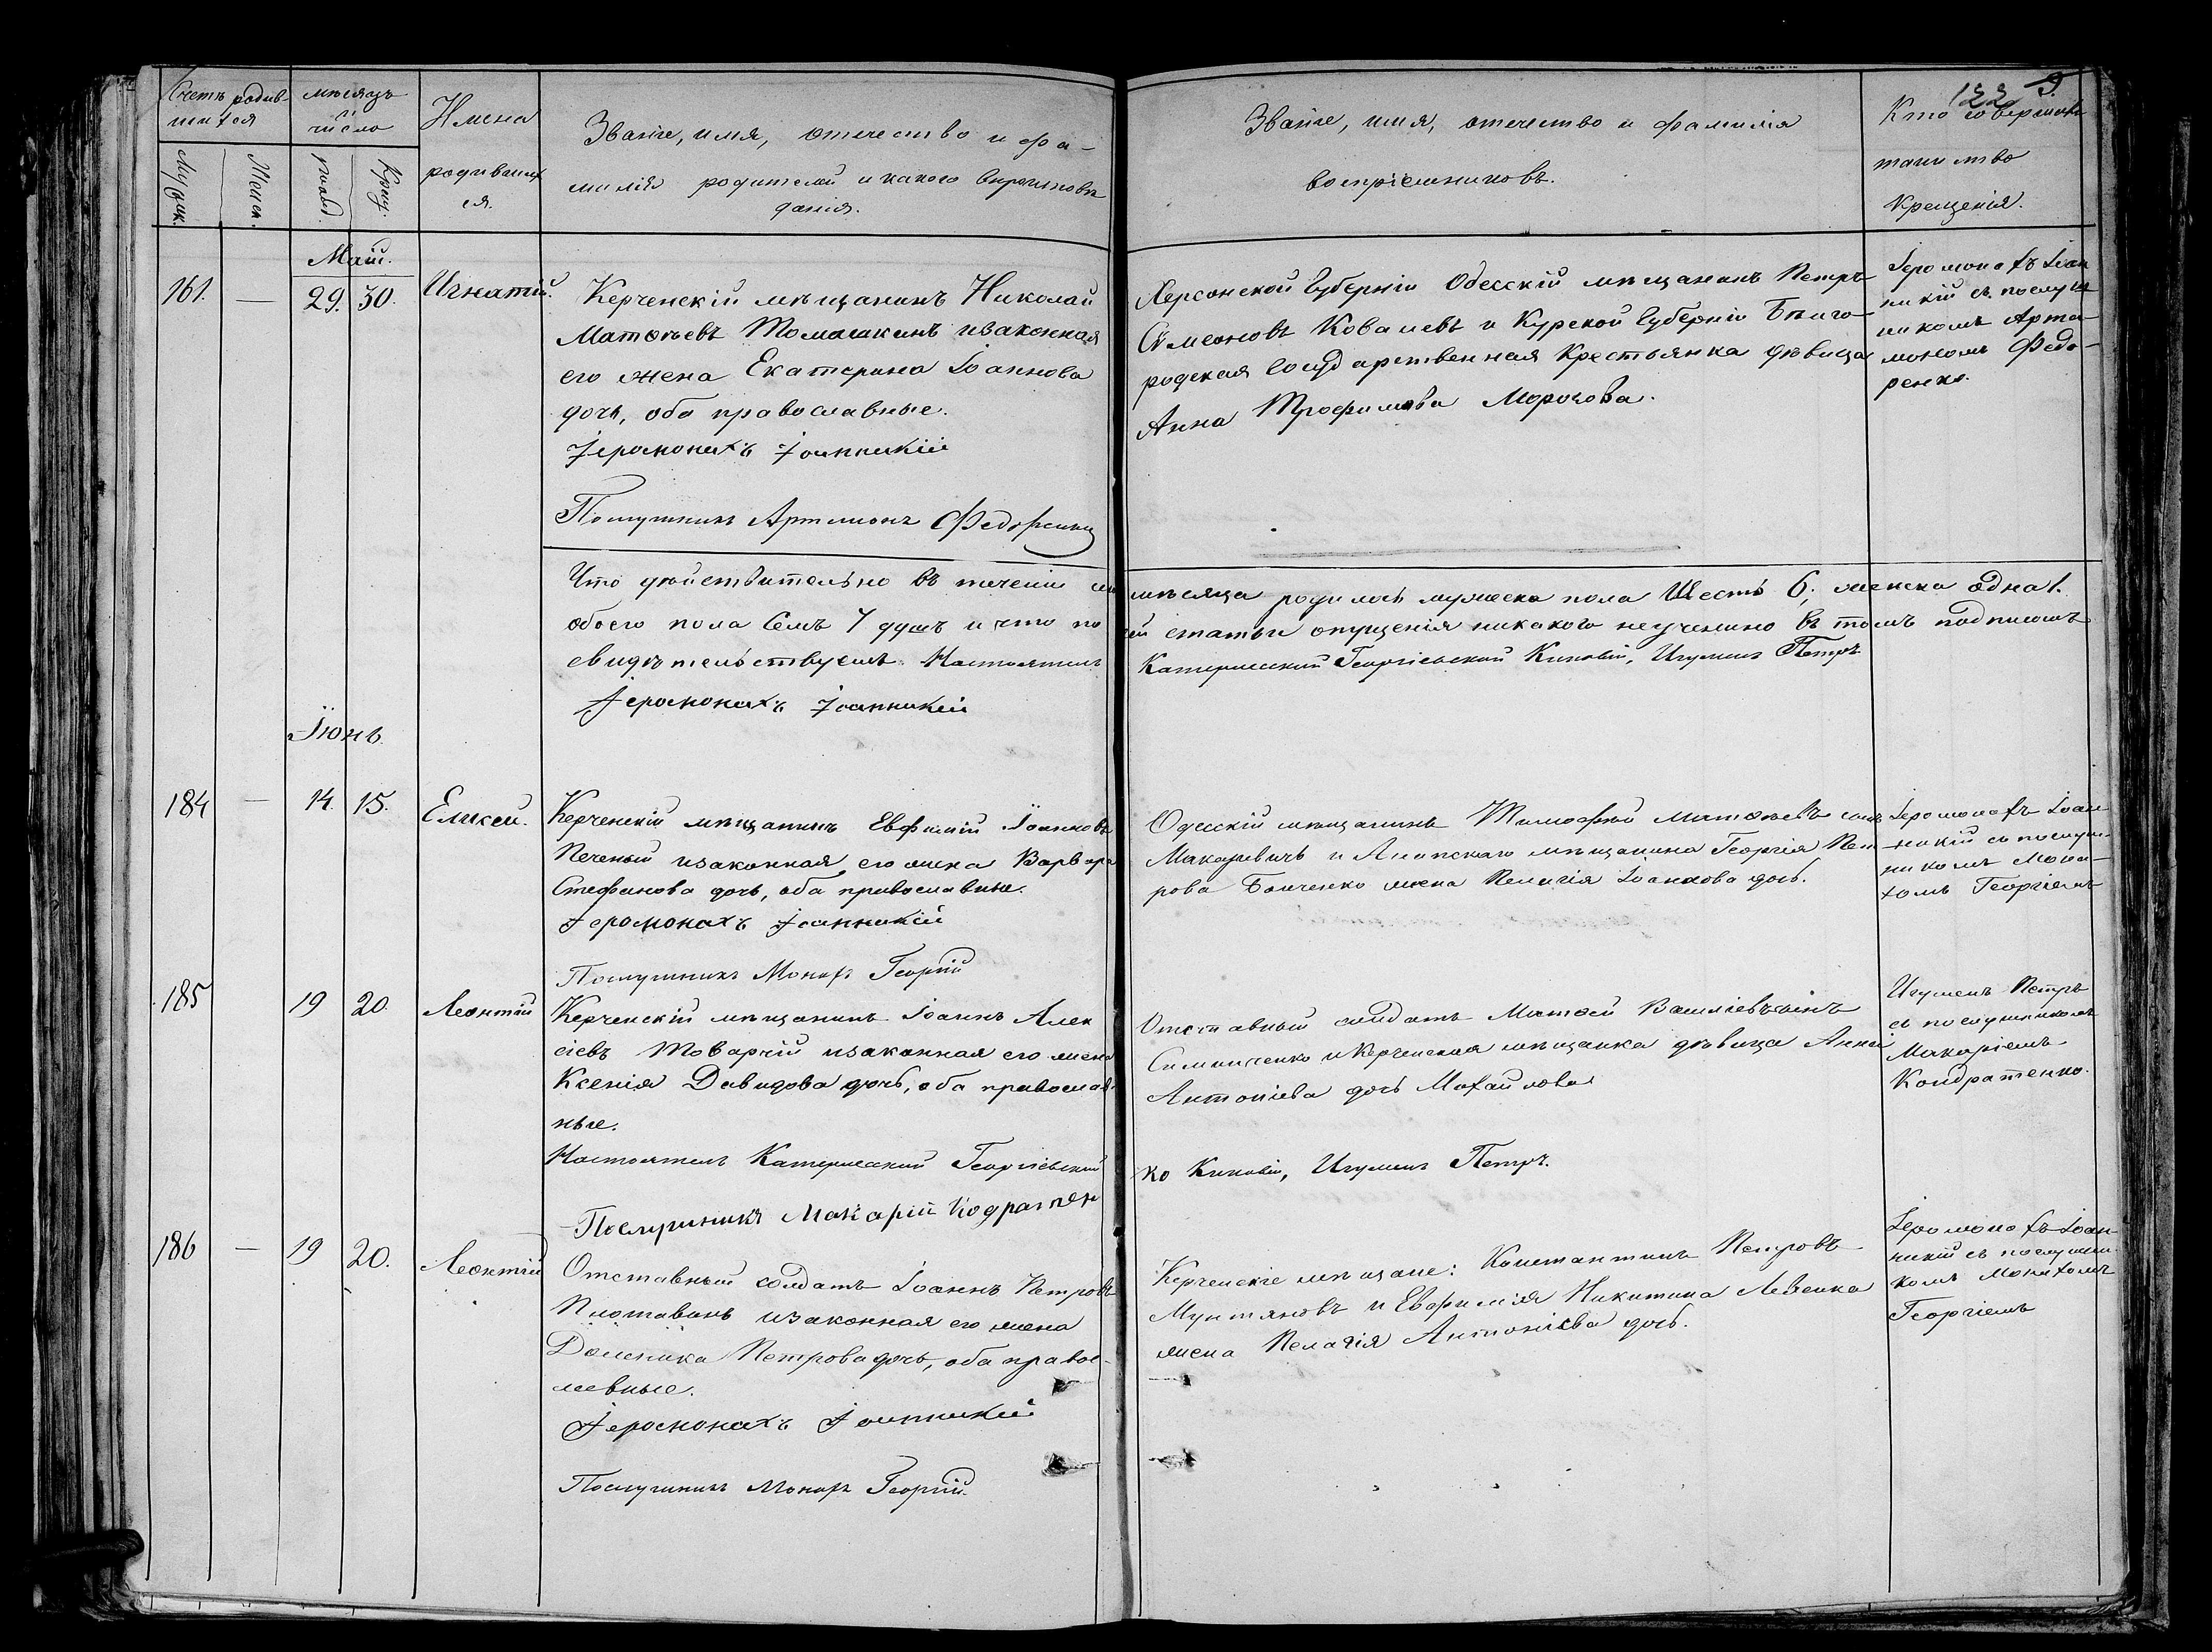 122 9.
Счетъ родив-
шихся
Мужск.
Женск.
мѣсяцъ
и
число
рожд.
Крещ.
Имена
родивших
ся.
Званіе, имя, отечество и фа-
милія родителей и какого вѣроисповѣ
данія.
Званіе, имя, отечество и фамилія
воспріемниковъ.
Кто совершилъ
таинство
Крещенія.
Май.
161. — 29. 30. Игнатій.
Керченскій мѣщанинъ Николай
Матѳѣевъ Томашкинъ изаконная
его жена Екатерина Іоаннова
дочь, оба православные.
Іеромонахъ Іоанникій
Послушникъ Артамонъ Федоренко
Херсонской Губерніи Одесскій мѣщанинъ Петръ
Сѵмеоновъ Ковалевъ и Курской Губерніи Бѣлго
родская Государственная Крестьянка дѣвица
Анна Трофимова Морозова.
Іеромонахъ Іоан
никій съ послуш
никомъ Арта
мономъ Федо-
ренко.
Что дѣйствительно въ теченіи сего мѣсяца родилось мужеска пола Шесть 6; женска одна 1.
обоего пола Семъ 7 душъ и что по сей статьи опущенія никакого неучинено въ томъ подписомъ
свидѣтельствуемъ. Настоятель Катерлесской Георгіевской Киновіи, Игуменъ Петръ
Іеромонахъ Іоанникій
Іюнь
184 — 14. 15. Елисей.
Керченскій мѣщанинъ Евфимій Іоанновъ
Печеный изаконная его жена Варвара
Стефанова дочь, оба православные.
Іеромонахъ Іоанникій
Послушникъ Монахъ Георгій
Одесскій мѣщанинъ Тимофей Матѳѣевъ сынъ
Макаревичъ и Анапскаго мѣщанина Георгія Пет-
рова Бонченко жена Пелагія Іоаннова дочь.
Іеромонахъ Іоан-
никій съ послуш-
никомъ Мона-
хомъ Георгіемъ
185 19 20. Леонтій
Керченскій мѣщанинъ Іоаннъ Алек
сіевъ Товарчій изаконная его жена
Ксенія Давидова дочь, оба православ-
ные.
Настоятель Катерлесской Георгіевской Киновіи, Игуменъ Петръ.
Послушникъ Макарій Кодратенко
Отставный солдатъ Матѳей Василіевъ сынъ
Симоненко и Керченская мѣщанка дѣвица Анна
Антоніева дочь Михайлова
Игуменъ Петръ
съ послушникомъ
Макаріемъ
Кондратенко.
186 — 19 20. Леонтій
Отставный солдатъ Іоаннъ Петровъ
изаконная его жена
Домника Петрова дочь, оба право-
славные.
Іеромонахъ Іоанникій
Послушникъ Монахъ Георгій.
Керченскіе мѣщане: Константинъ Петровъ
Мунтяновъ и Евфимія Никитина Левченка
жена Пелагія Антоніева дочь.
Іеромонахъ Іоан-
никій съ послушни-
комъ Монахомъ
Георгіемъ